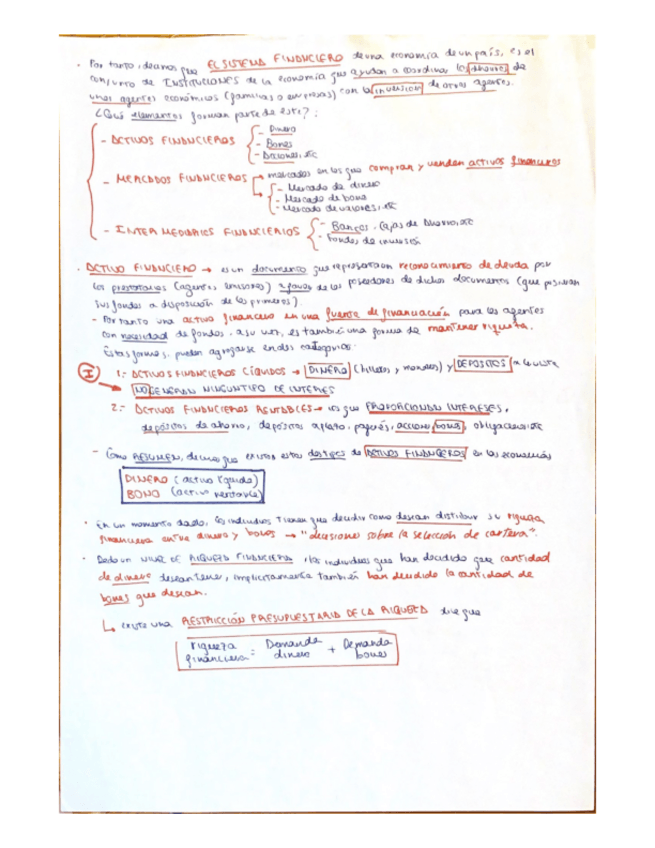 · Por tanto, decimos que EL SISTEMA FINANCIERO de una economía de un país, es el
conjunto de INSTITUCIONES de la economía que ayudan a coordinar los ahorros de
unos agentes económicos (familias o empresas) con la inversión de otros agentes.
¿Qué elementos forman parte de este?:
- ACTIVOS FINANCIEROS
- Dinero
- Bonos
- Acciones, etc
- MERCADOS FINANCIEROS → mercados en los que compran y venden activos financieros
- Mercado de dinero
- Mercado de bonos
- Mercado de valores, etc
- INTERMEDIARIOS FINANCIEROS
- Bancos, Cajas de Ahorro, etc
- Fondos de inversión
· ACTIVO FINANCIERO → es un documento que representa un reconocimiento de deuda por
los prestatarios (agentes emisores) a favor de los poseedores de dichos documentos (que pusieron
sus fondos a disposición de los primeros)
- Por tanto una activo financiero es una fuente de financiación para los agentes
con necesidad de fondos. a su vez, es también una forma de mantener riqueza.
Estas formas, pueden agruparse en dos categorías:
I 1.- ACTIVOS FINANCIEROS LÍQUIDOS → DINERO (billetes y monedas) y DEPÓSITOS a la vista
NO GENERAN NINGUN TIPO DE INTERES
2.- ACTIVOS FINANCIEROS RENTABLES → los que PROPORCIONAN INTERESES,
depósitos de ahorro, depósitos a plazo, pagarés, acciones, bonos, obligaciones etc
- Como RESUMEN, decimos que existen estos dos tipos de ACTIVOS FINANCIEROS en las economías
DINERO (activo líquido)
BONO (activo rentable)
· En un momento dado, los individuos tienen que decidir como desean distribuir su riqueza
financiera entre dinero y bonos → "decisiones sobre la selección de cartera".
· Dado un NIVEL DE RIQUEZA FINANCIERA, los individuos que han decidido que cantidad
de dinero desean tener, implícitamente también han decidido la cantidad de
bonos que desean.
↳ existe una RESTRICCIÓN PRESUPUESTARIA DE LA RIQUEZA dice que
riqueza financiera = Demanda dinero + Demanda bonos